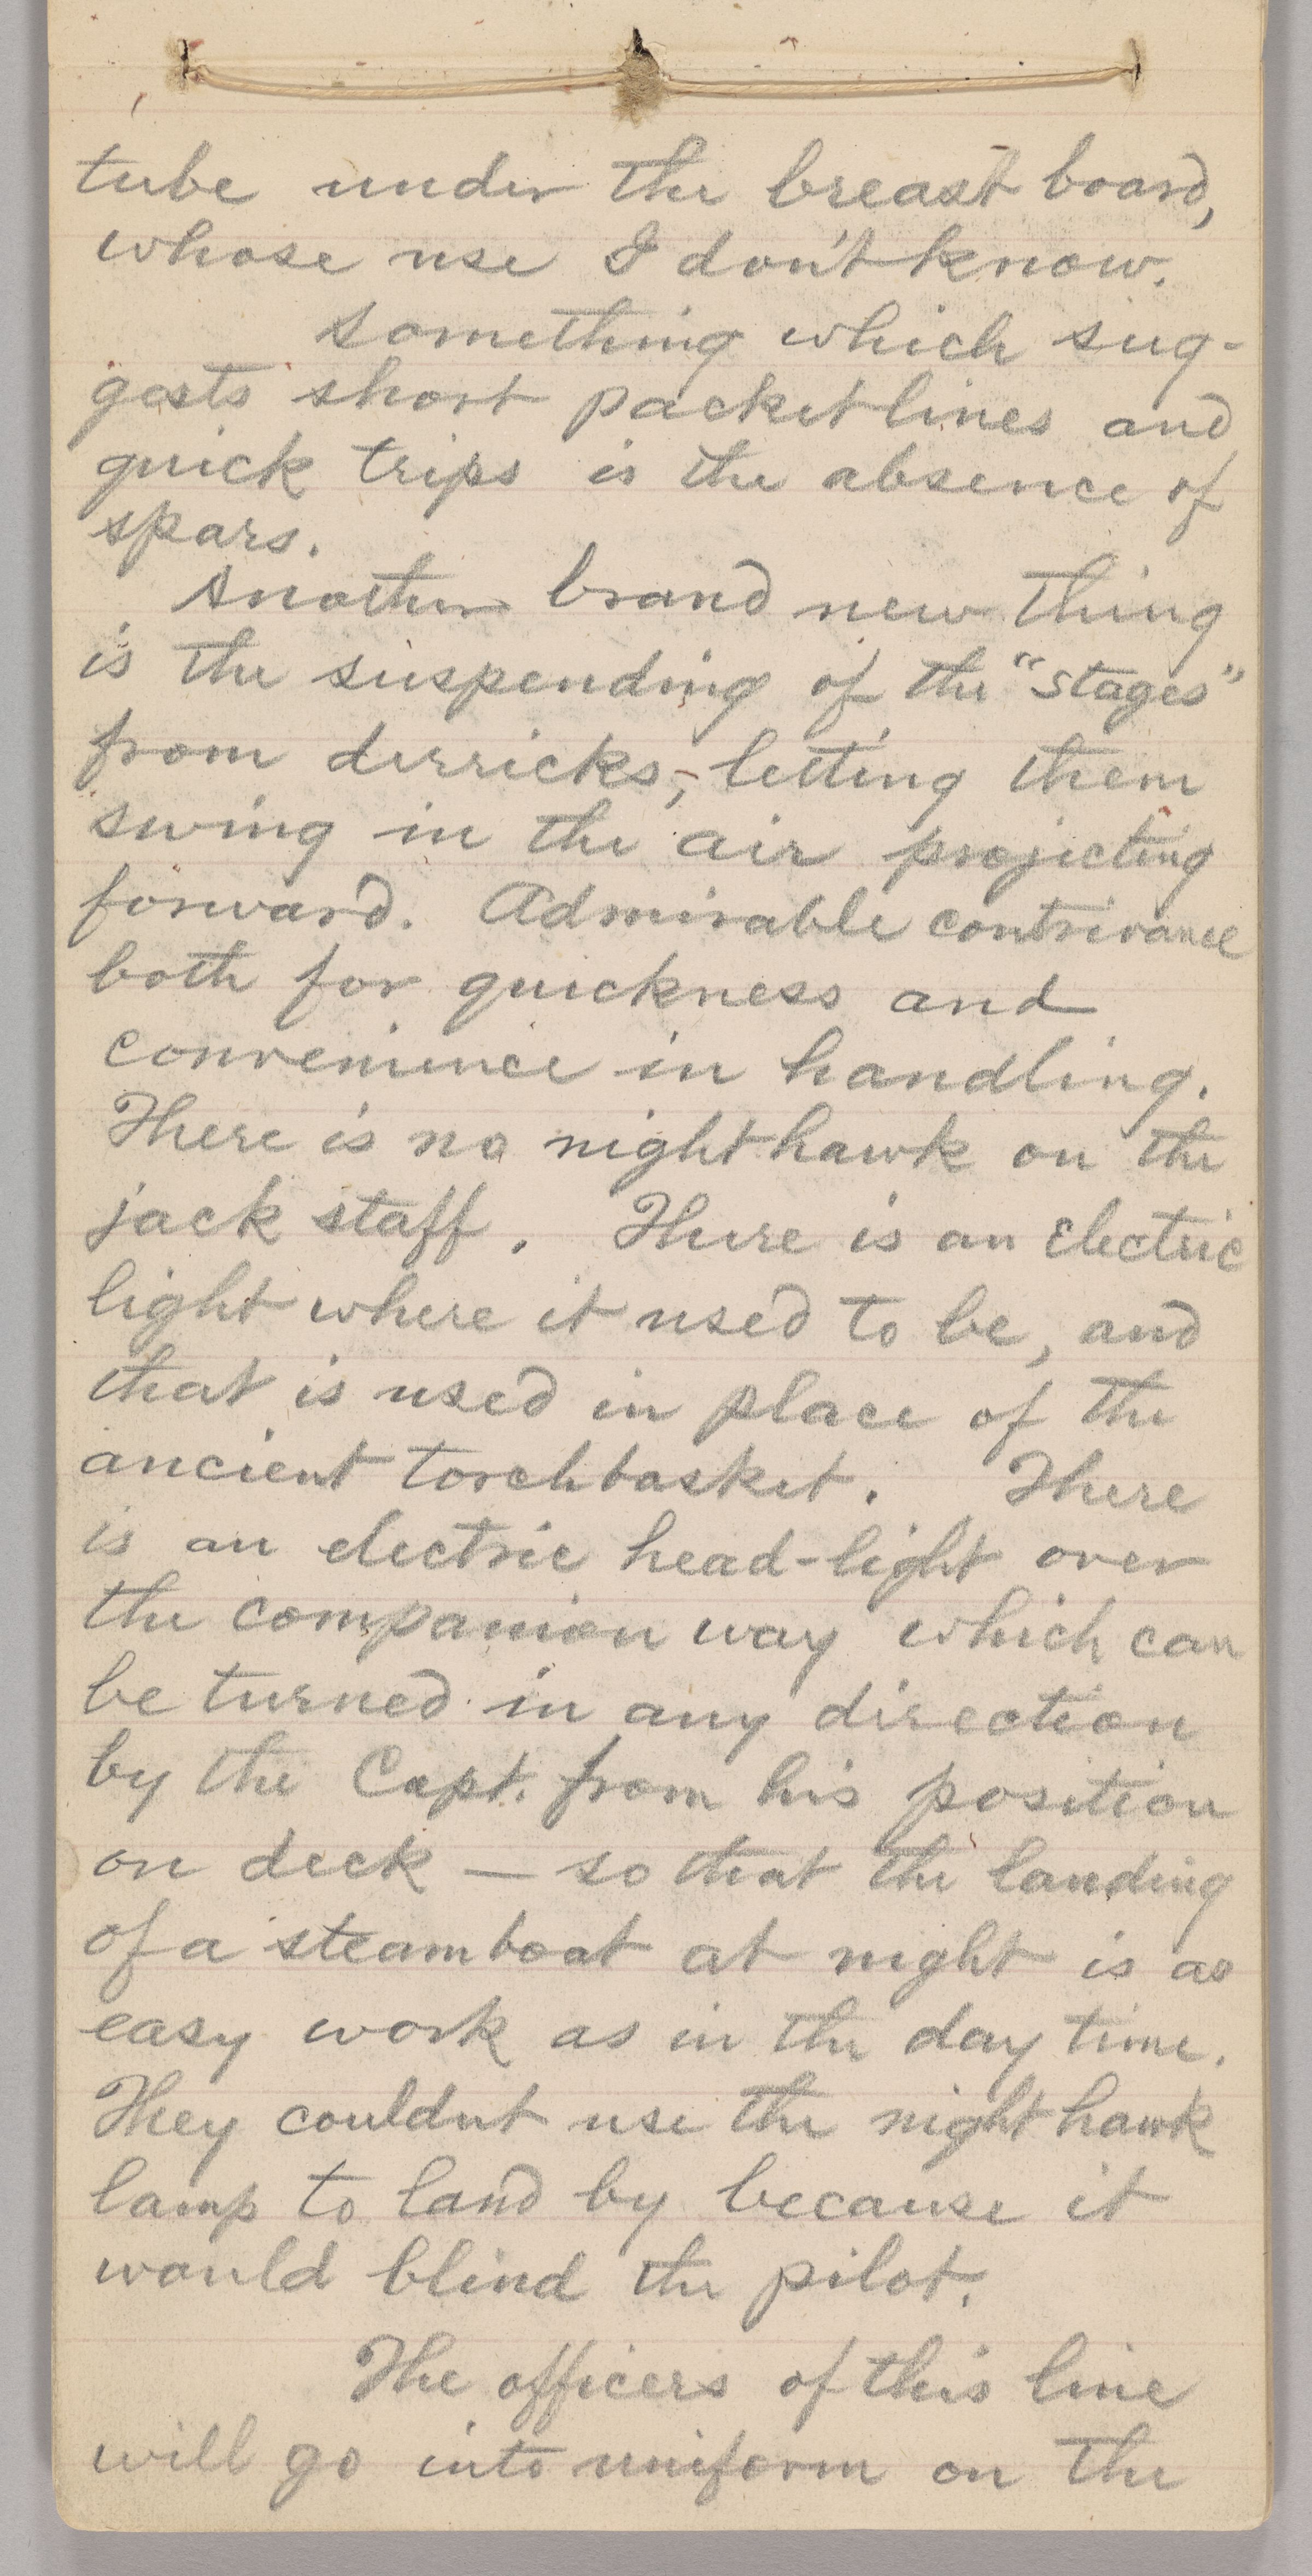 tube under the breast board,
whose use I don't know.
Something which sug-
gests short packet lines and
quick trips is the absence of
spars.
Another brand new thing
is the suspending of the "stages"
from derricks, letting them
swing in the air projecting
forward. Admirable contrivance
both for quickness and
convenience in handling.
There is no nighthawk on the
jack staff. There is an electric
light where it used to be, and
that is used in place of the
ancient torchbasket. There
is an electric head-light over
the companion way which can
be turned in any direction
by the Capt. from his position
on deck — so that the landing
of a steamboat at night is as
easy work as in the day time.
They couldnt use the night hawk
lamp to land by because it
would blind the pilot.
The officers of this line
will go into uniform on the